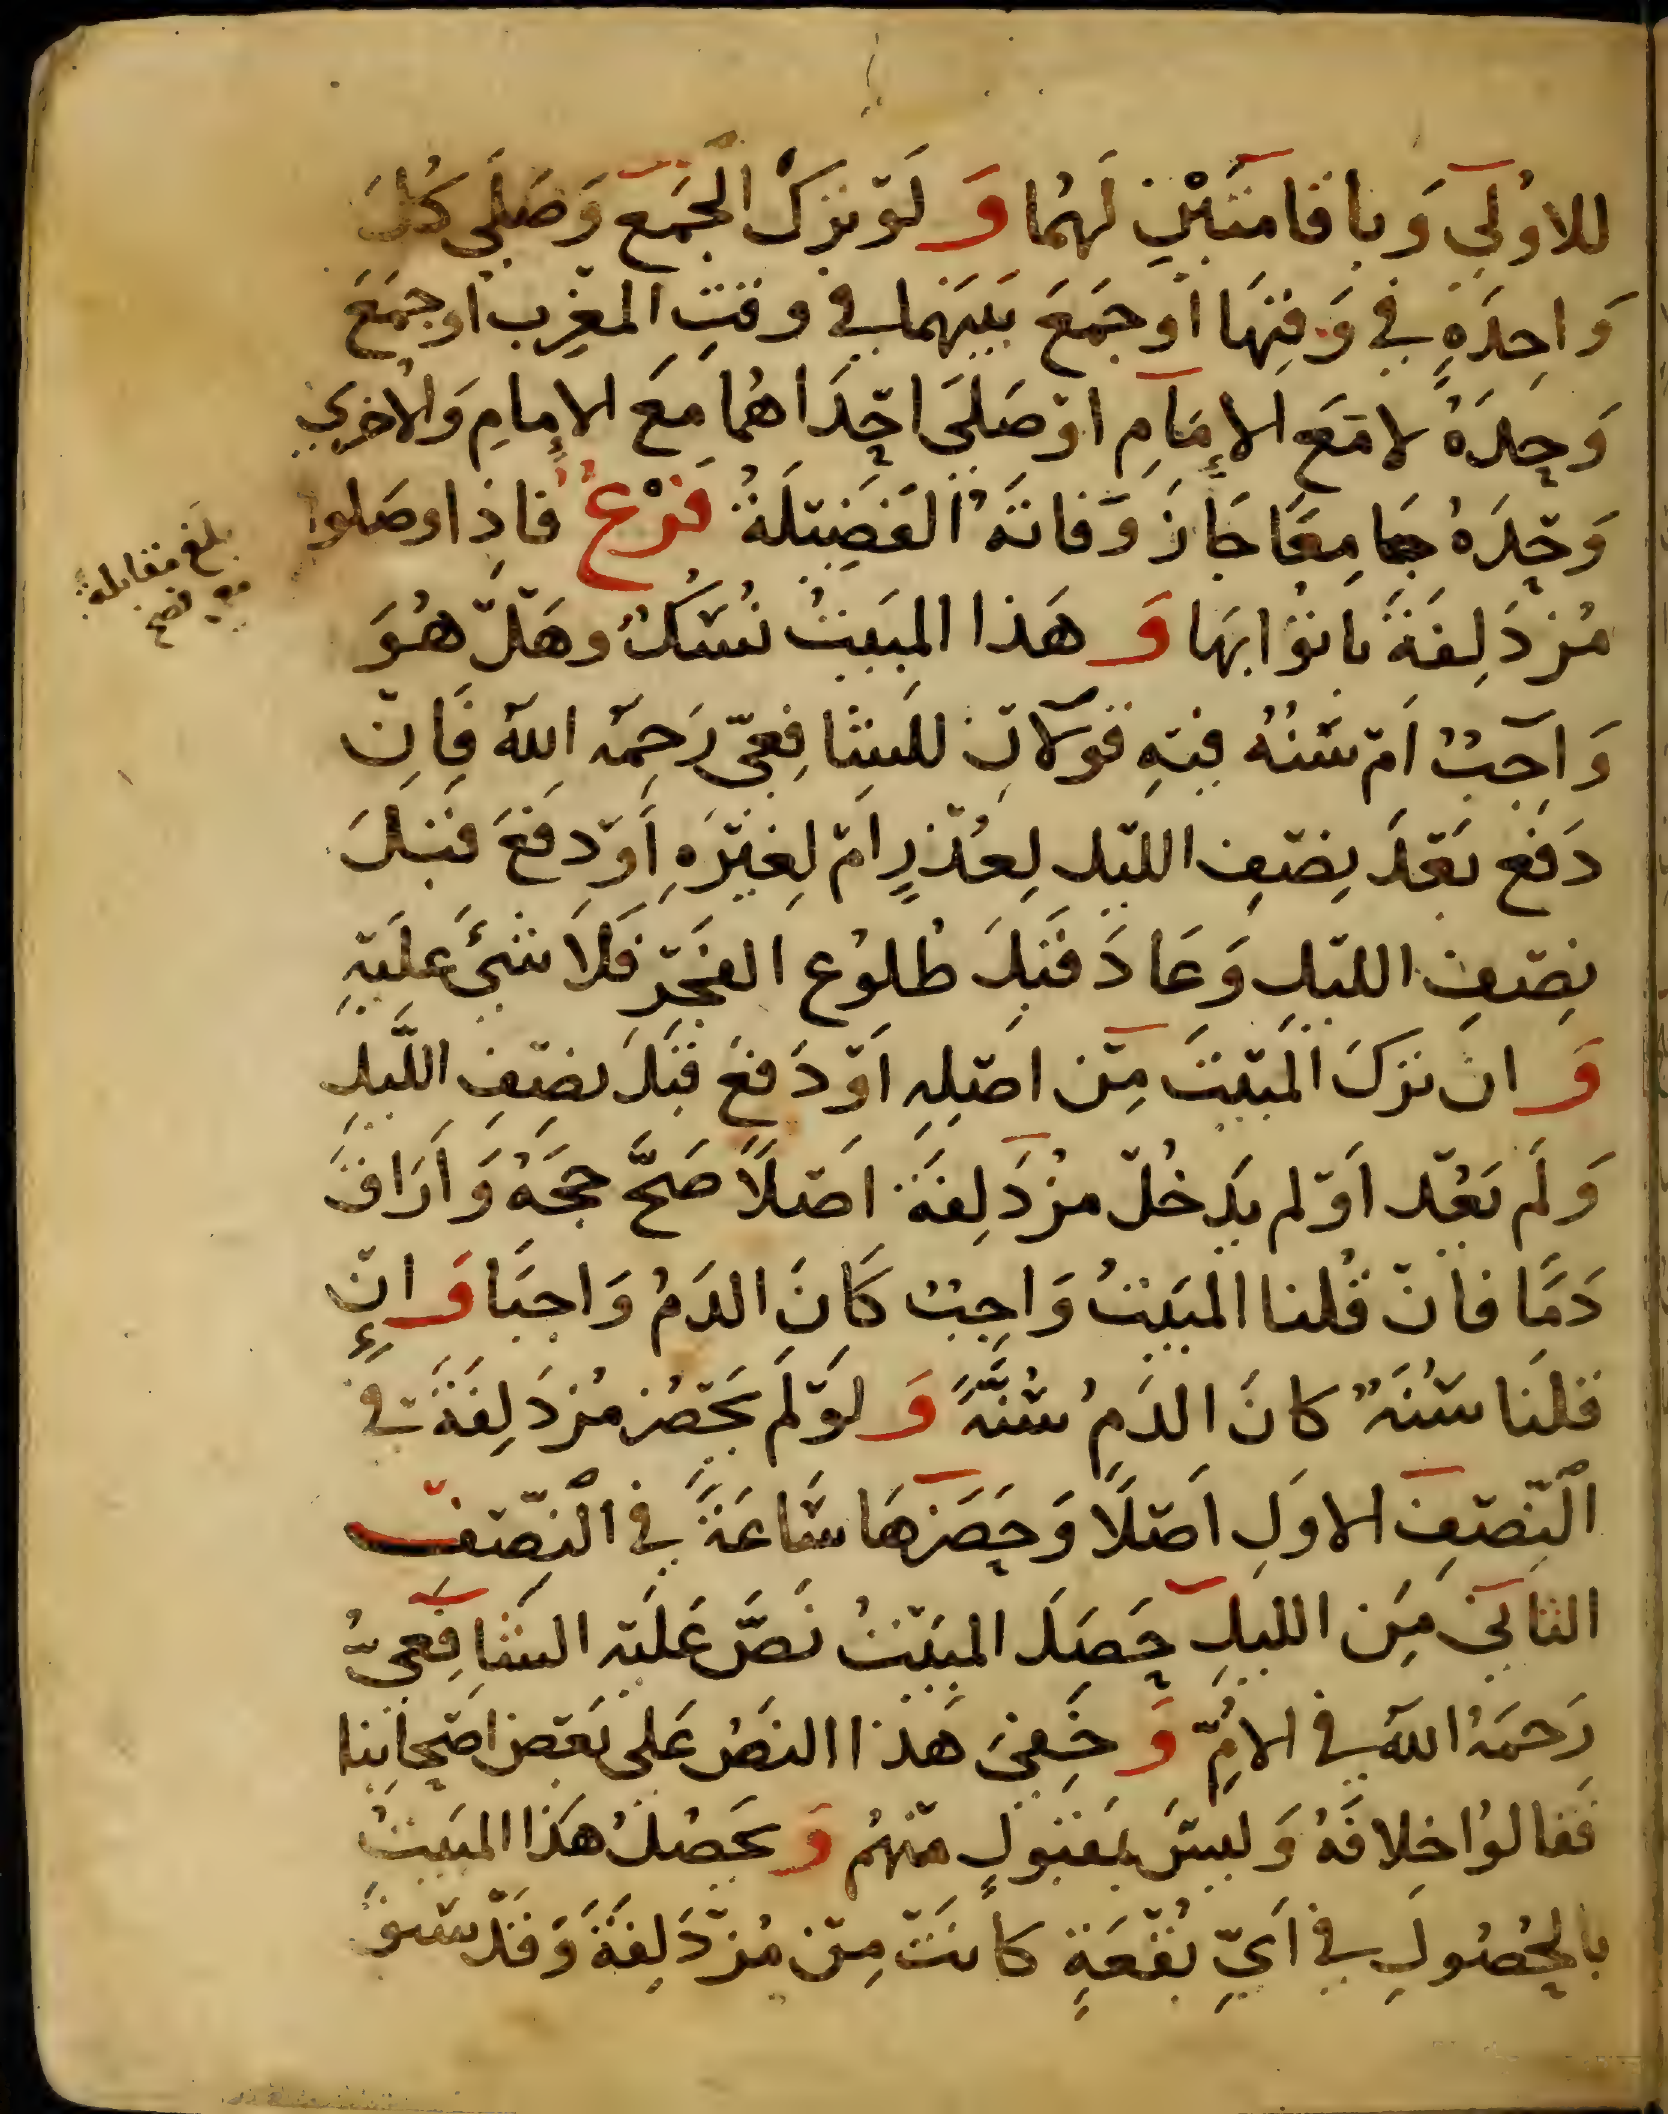 للاُولَى وَباقامَتَيْنِ لَهُمَا وَ لَوْ تَرَكَ الجَمَعَ وَصَلَى كُلَ
وَاحِدَهٍ فِي وَقتِهَا اَو جَمَعَ بَيَنهُما في وقتِ المَغْرِب اَو جمَعَ
وَحِدَهُ لا مَعَ الإمَامِ اوْ صَلَى احْدَاهُما مَعَ الإمامِ وَالاُخرَى
وَحْدَهُ جَامِعًا جَازَ وَفاتَهُ الفَضِيْلَةُ فَرْعٌ فاذِا وصَلوا
مُزْدَلِفَةَ باتوُا بهَا وَ هَذا المبَيتُ نُسُكٌ وهَلْ هُوَ
وَاجَبٌ اَمْ سُنَةٌ فيْهِ قَوْلاَنِ للشَافِعىّ رَحِمَهُ اللهُ فَاِنْ
دَفَع بَعْدَ نِصْفِ الليْلِ لِعُذْرٍ اَمْ لِغَيْرَهِ اَوْ دَفَعَ قبْلَ
نِصْفِ الليْلِ وَعَادَ قبْلَ طُلوُعِ الفَجْرِ فَلاَ شَئَ عَلَيْهِ
وَ ان تَرَكَ المَبْيتَ مِنْ اصْلِهِ اَوْ دَفَعَ قَبْلَ نصْفِ اللَّيلِ
وَلَمْ يَعُدْ اَوْ لم يَدخُلْ مزُدَلِفَةَ اَصْلًا صَحَّ حجَهُ وَاَرَاقَ
دَمًا فانْ قُلنا المبَيتُ وَاجِبٌ كَانَ الدَمُ وَاجبًا وَ اِنْ
قلنَا سُنَةٌ كانَ الدَمُ سُنَّةً وَ لوْ لَمْ يَحْضُرْ مُزدَلِفَةَ في
النّصْفِ الاولِ اَصْلًا وَحَضَرَهَا سَاعَةً في النِصْفِ
الثاني مِنَ الليلِ حَصَلَ المبَيْتُ نَصَّ عَلَيْهِ الشافِعىُّ
رَحمَهُ اللهُ في الامُّ وَ خَفِىَ هَذا النَصُ عَلى بَعْضِ اصْحَابِنا
فَقالوُا خِلافَهُ وَليسَ بمَقبولٍ مْنهُم وَ يَحصُلُ هَذا المبَيتُ
بالحُضوُرِ في اَيِّ بُقْعَةٍ كاَنَتْ مِنْ مُزْدَلِفَةَ وَقدْ سَبَقَ
بلغ مقابلة
فصح